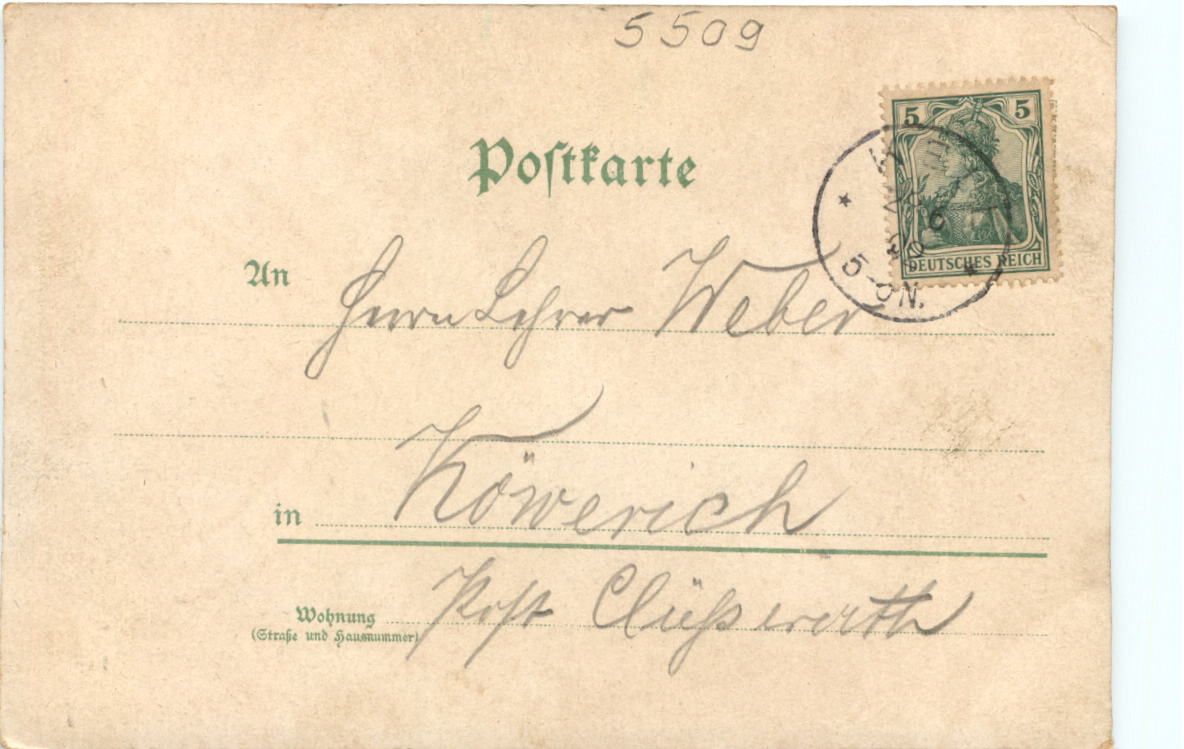 5509
Poſtkarte
5 5
DEUTSCHES REICH
5-6N.
An Herrn Lehrer Weber
in Köwerich
Wohnung
(Straße und Hausnummer)
Post Clüßerath